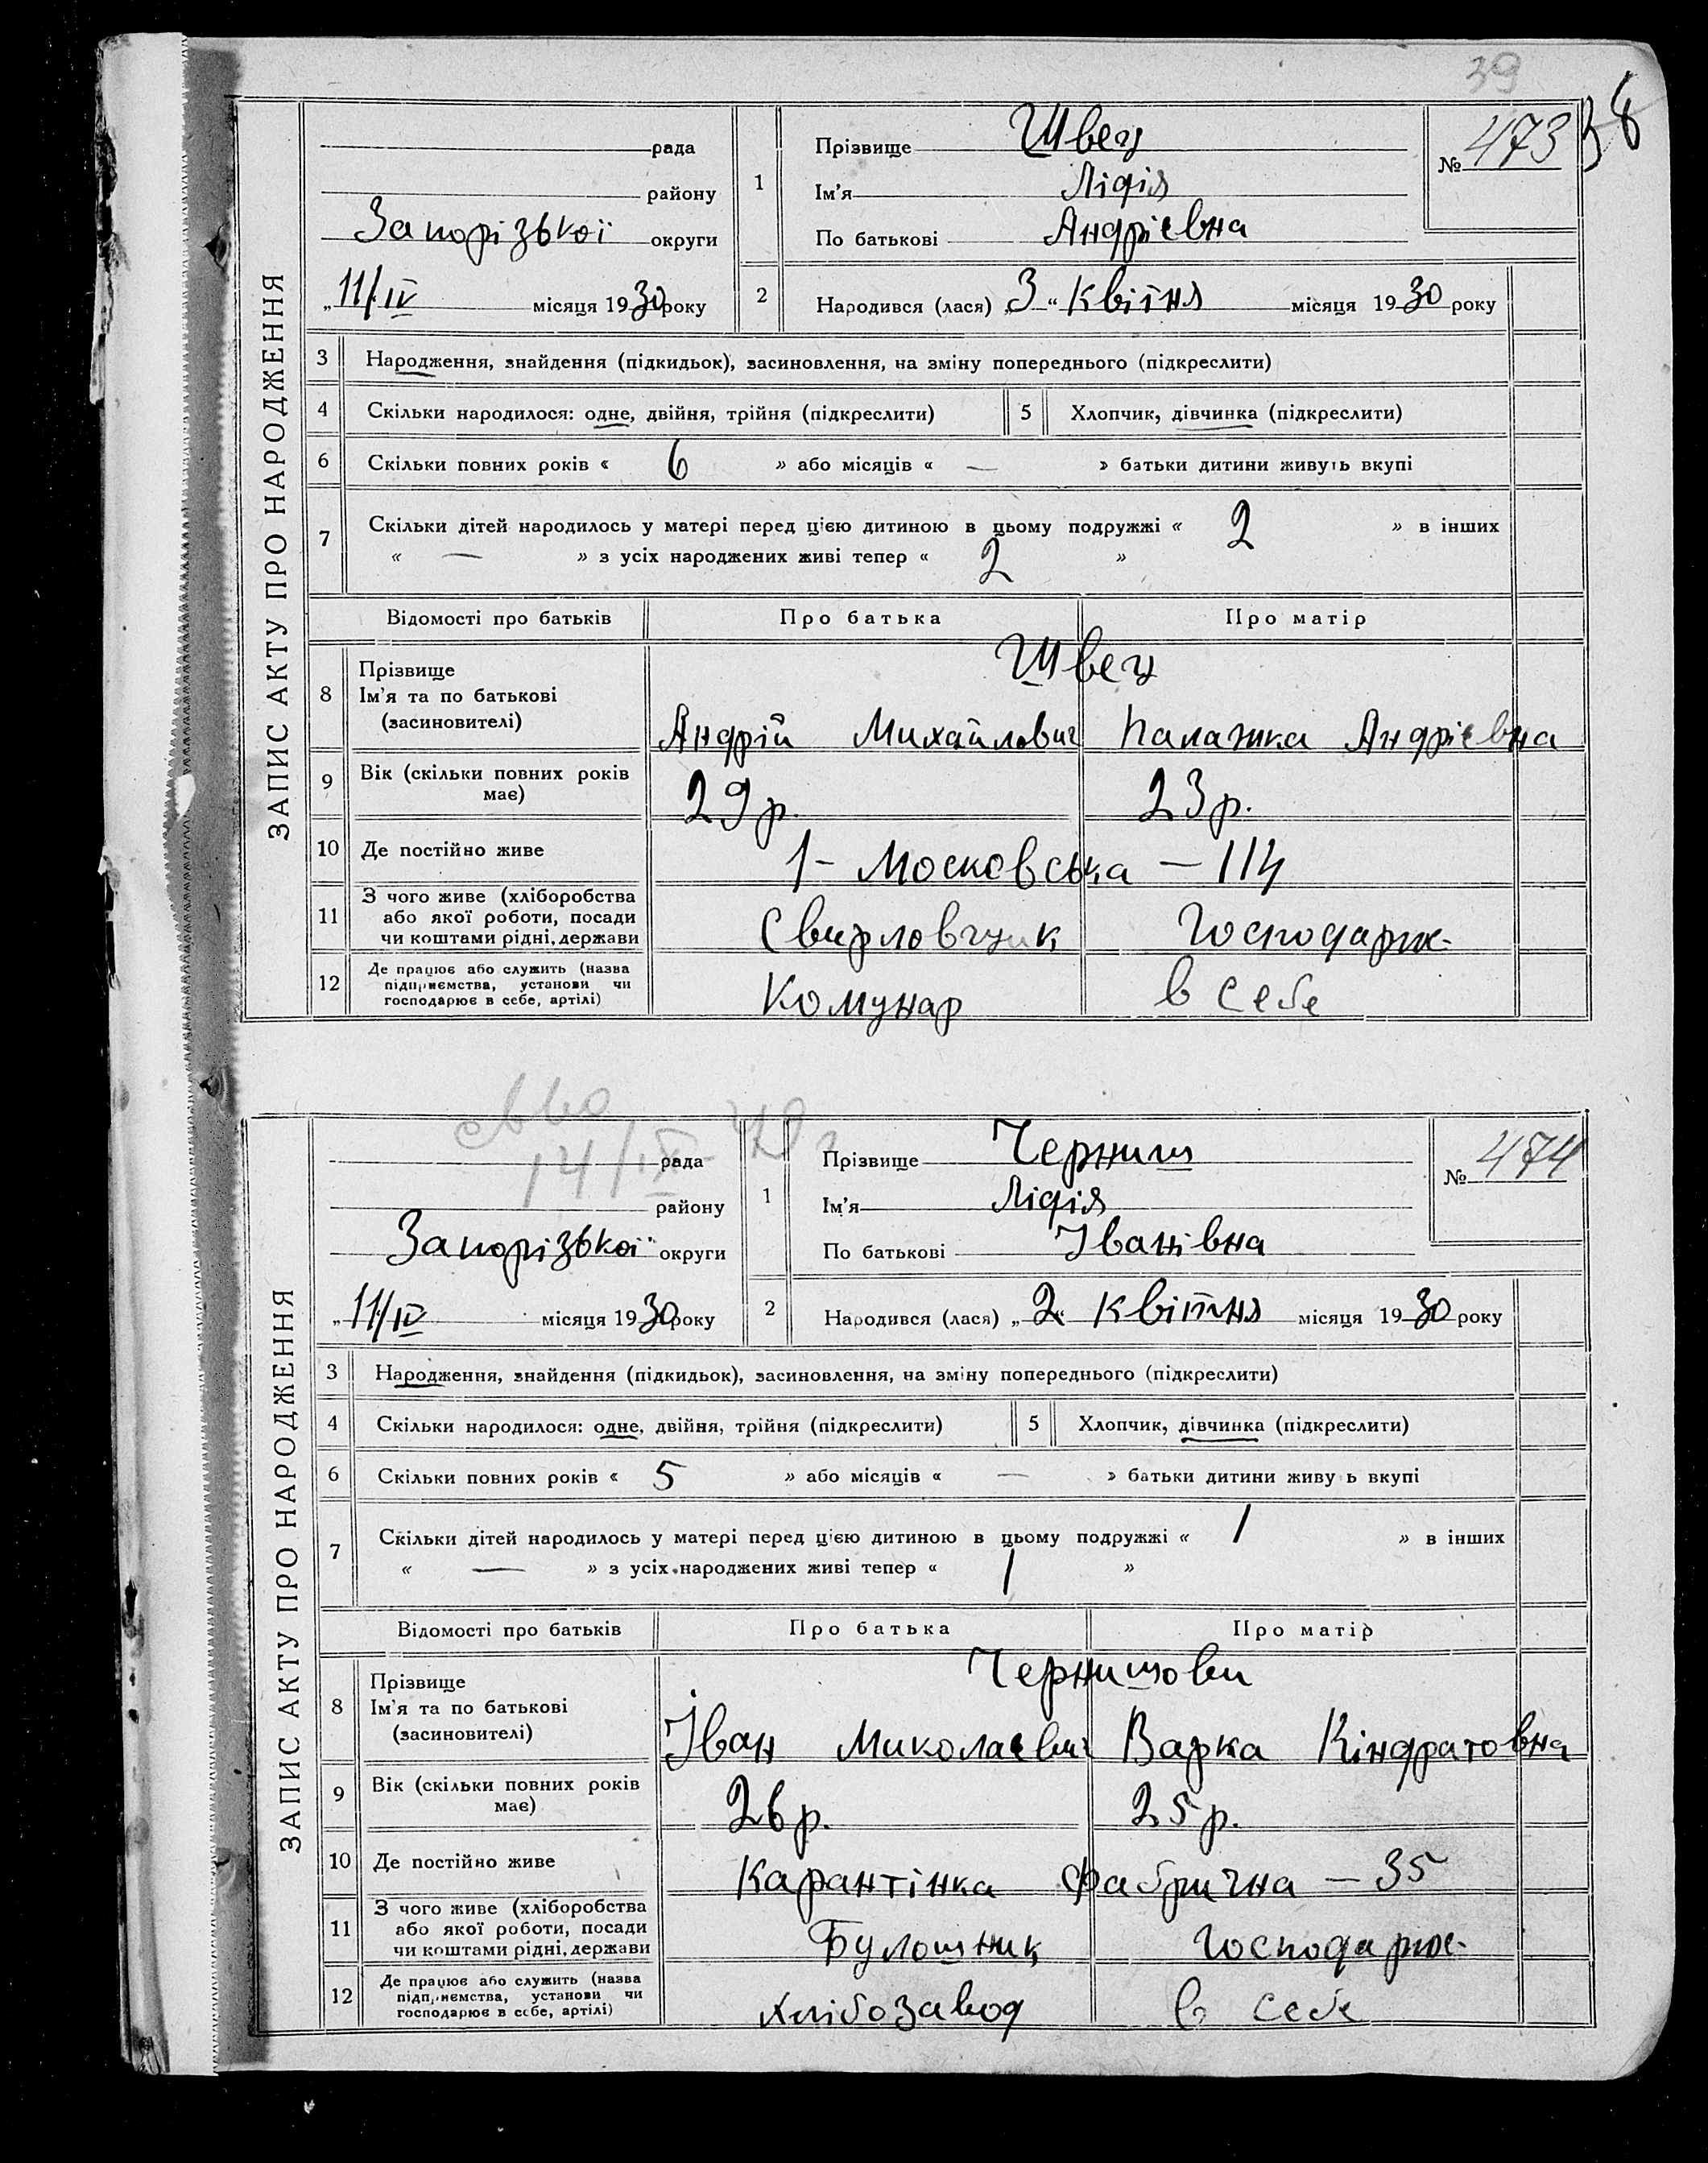 39
38
ЗАПИС АКТУ ПРО НАРОДЖЕННЯ
рада
району
Запорізької округи
„11/IV місяця 1930 року
1 Прізвище Швец
Ім'я Лідія
По батькові Андріевна
№ 473
2 Народився (лася) „3“ Квітня місяця 1930 року
3 Народження, знайдення (підкидьок), засиновлення, на зміну попереднього (підкреслити)
4 Скільки народилося: одне, двійня, трійня (підкреслити) 5 Хлопчик, дівчинка (підкреслити)
6 Скільки повних років « 6 » або місяців « — » батьки дитини живуть вкупі
7 Скільки дітей народилось у матері перед цією дитиною в цьому подружжі « 2 » в інших
« — » з усіх народжених живі тепер « 2 »
Відомості про батьків Про батька Про матір
8 Прізвище
Ім'я та по батькові
(засиновителі)
Швец
Андрій Михайлович Палажка Андріевна
9 Вік (скільки повних років
має)
29 р. 23 р.
10 Де постійно живе 1 - Московська — 114
11 З чого живе (хліборобства
або якої роботи, посади
чи коштами рідні, держави
Свирловщик Господарж.
12 Де працює або служить (назва
підприємства, установи чи
господарює в себе, артілі)
Комунар в себе
14/IX-
ЗАПИС АКТУ ПРО НАРОДЖЕННЯ
рада
району
Запорізької округи
„11/IV місяця 1930 року
1 Прізвище Черниш
Ім'я Лідія
По батькові Іванівна
№ 474
2 Народився (лася) „2“ Квітня місяця 1930 року
3 Народження, знайдення (підкидьок), засиновлення, на зміну попереднього (підкреслити)
4 Скільки народилося: одне, двійня, трійня (підкреслити) 5 Хлопчик, дівчинка (підкреслити)
6 Скільки повних років « 5 » або місяців « — » батьки дитини живу ь вкупі
7 Скільки дітей народилось у матері перед цією дитиною в цьому подружжі « 1 » в інших
« — » з усіх народжених живі тепер « 1 »
Відомості про батьків Про батька Про матір
8 Прізвище
Ім'я та по батькові
(засиновителі)
Чернишови
Іван Миколаевич Варка Кіндратовна
9 Вік (скільки повних років
має)
26 р. 25 р.
10 Де постійно живе Карантінка Фабрична — 35
11 З чого живе (хліборобства
або якої роботи, посади
чи коштами рідні, держави
Булошник Господарж.
12 Де працює або служить (назва
підприємства, установи чи
господарює в себе, артілі)
Хлібозавод в себе